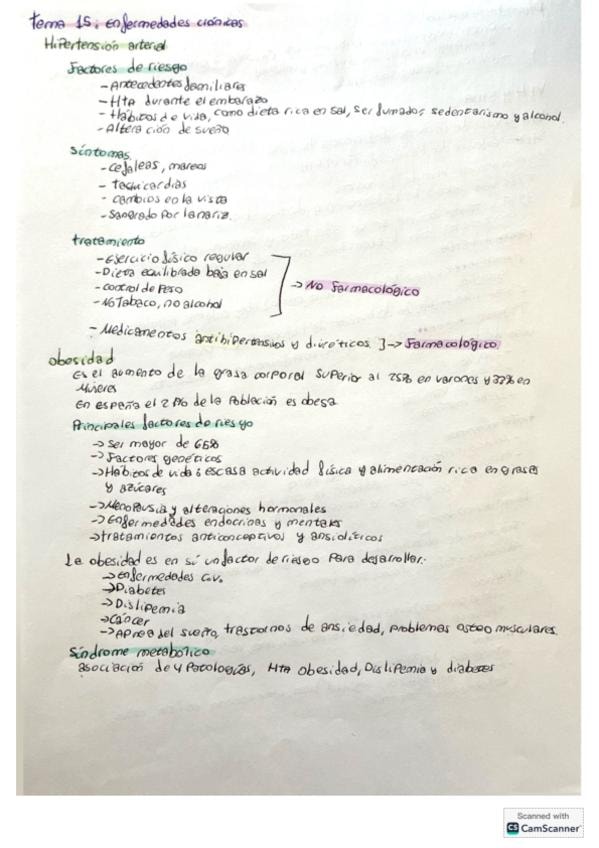 Tema 15: enfermedades crónicas
Hipertensión arterial
Factores de riesgo
- Antecedentes familiares
- Hta durante el embarazo
- Hábitos de vida, como dieta rica en sal, ser fumador, sedentarismo y alcohol.
- Alteración de sueño
Síntomas
- cefaleas, mareos
- taquicardias
- cambios en la vista
- Sangrado por la nariz.
tratamiento
- Ejercicio físico regular
- Dieta equilibrada baja en sal
- control de peso
- No Tabaco, no alcohol
→ No farmacológico
- Medicamentos antihipertensivos y diuréticos ] → Farmacológico
obesidad
Es el aumento de la grasa corporal superior al 25% en varones y 32% en
mujeres
En españa el 21% de la población es obesa
Principales factores de riesgo
→ Ser mayor de 65%
→ Factores genéticos
→ Hábitos de vida: escasa actividad física y alimentación rica en grasas
y azúcares
→ Menopausia y alteraciones hormonales
→ Enfermedades endocrinas y mentales
→ tratamientos anticonceptivos y ansiolíticos
La obesidad es en sí un factor de riesgo para desarrollar:
→ enfermedades C.V.
→ Diabetes
→ Dislipemia
→ Cáncer
→ Apnea del sueño, trastornos de ansiedad, problemas osteomusculares.
Síndrome metabólico
asociación de 4 patologías, Hta obesidad, Dislipemia y diabetes
Scanned with
CS CamScanner